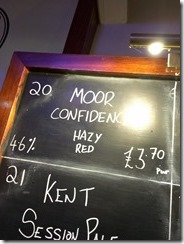 20 MOOR
CONFIDENC
HAZY
RED
4.6% £3.70
Pint
21 KENT
SESSION PALE